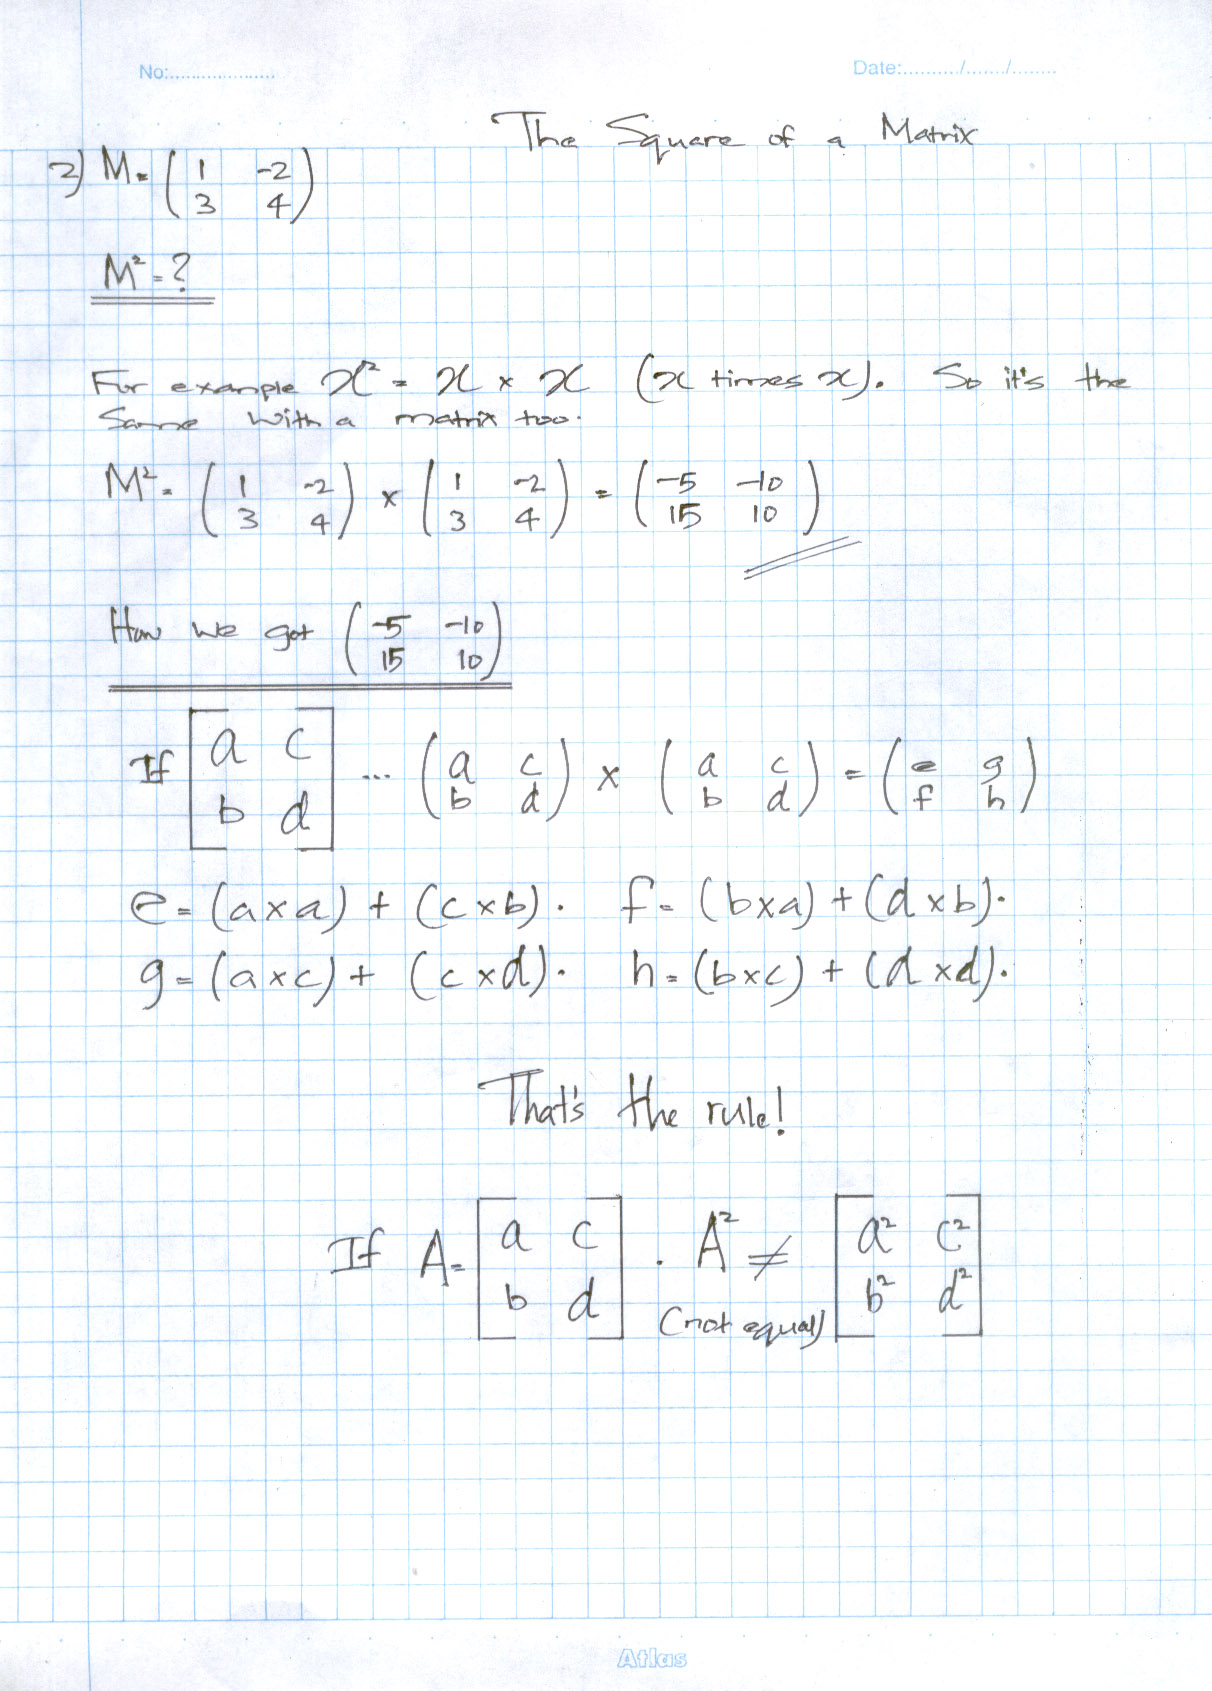 No:.................... Date:........../......./........
The Square of a Matrix
2) M = ( 1 -2
3 4 )
M² = ?
For example x² = x × x (x times x). So it's the
same with a matrix too.
M² = ( 1 -2
3 4 ) × ( 1 -2
3 4 ) = ( -5 -10
15 10 )
How we got ( -5 -10
15 10 )
If [ a c
b d ] ... ( a c
b d ) × ( a c
b d ) = ( e g
f h )
e = (a×a) + (c×b). f = (b×a) + (d×b).
g = (a×c) + (c×d). h = (b×c) + (d×d).
That's the rule!
If A = [ a c
b d ] . A² ≠ [ a² c²
b² d² ]
(not equal)
Atlas